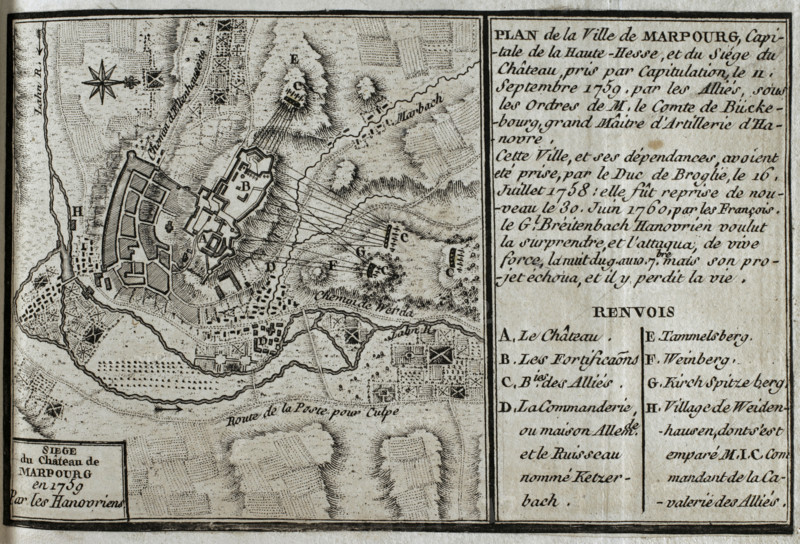 PLAN de la Ville de MARPOURG, Capi-
tale de la Haute-Hesse, et du Siége du
Château, pris par Capitulation, le 11.
Septembre 1759. par les Alliés, sous
les Ordres de M. le Comte de Bücke-
bourg, grand Maitre d'Artillerie d'Ha-
novre.
Cette Ville, et ses dépendances, avoient
eté prise, par le Duc de Broglie, le 16.
Juillet 1758: elle fut reprise de nou-
veau le 30. Juin 1760, par les François.
le Gl. Breitenbach Hanovrien voulut
la surprendre, et l'attaqua, de vive
force, la nuit du 9 au 10. 7bre mais son pro-
jet échoua, et il y perdit la vie.
RENVOIS
A. Le Château.
B. Les Fortificaõns
C. Bies. des Alliés.
D. La Commanderie,
ou maison Allemde.
et le Ruisseau
nommé Ketzer-
bach.
E. Tammelsberg.
F. Weinberg.
G. Kirch Spitze berg.
H. Village de Weiden-
-hausen, dont s'est
emparé M. I. C. Com
mandant de la Ca-
-valerie des Alliés.
Lahn R.
E
C
Marbach
B
H
C
C
G
C
D
F
Chemin de Werda
Lahn R.
D
Route de la Poste pour Culpe
SIEGE
du Château de
MARPOURG
en 1759
Par les Hanovriens